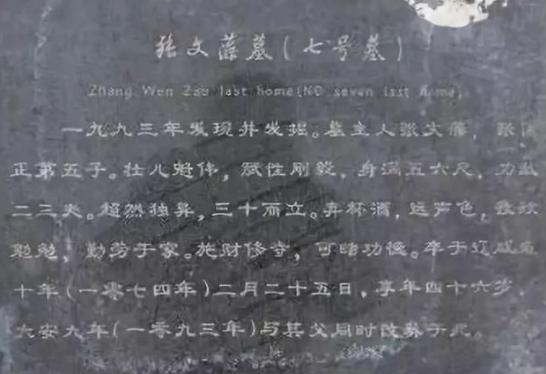 张文藻墓(七号墓)
Zhang Wen Zao last home(NO seven last home)
一九九三年发现并发掘。墓主人张文藻，张匡
正第五子。壮儿魁伟，赋性刚毅，身满五六尺，力敌
二三夫。超然独异，三十而立。弃杯酒，远声色，孜孜
勉勉，勤劳于家。施财修寺，可暗功德。卒于辽咸雍
十年(一零七四年)二月二十五日，享年四十六岁，
大安九年(一零九三年)与其父同时改葬于此。